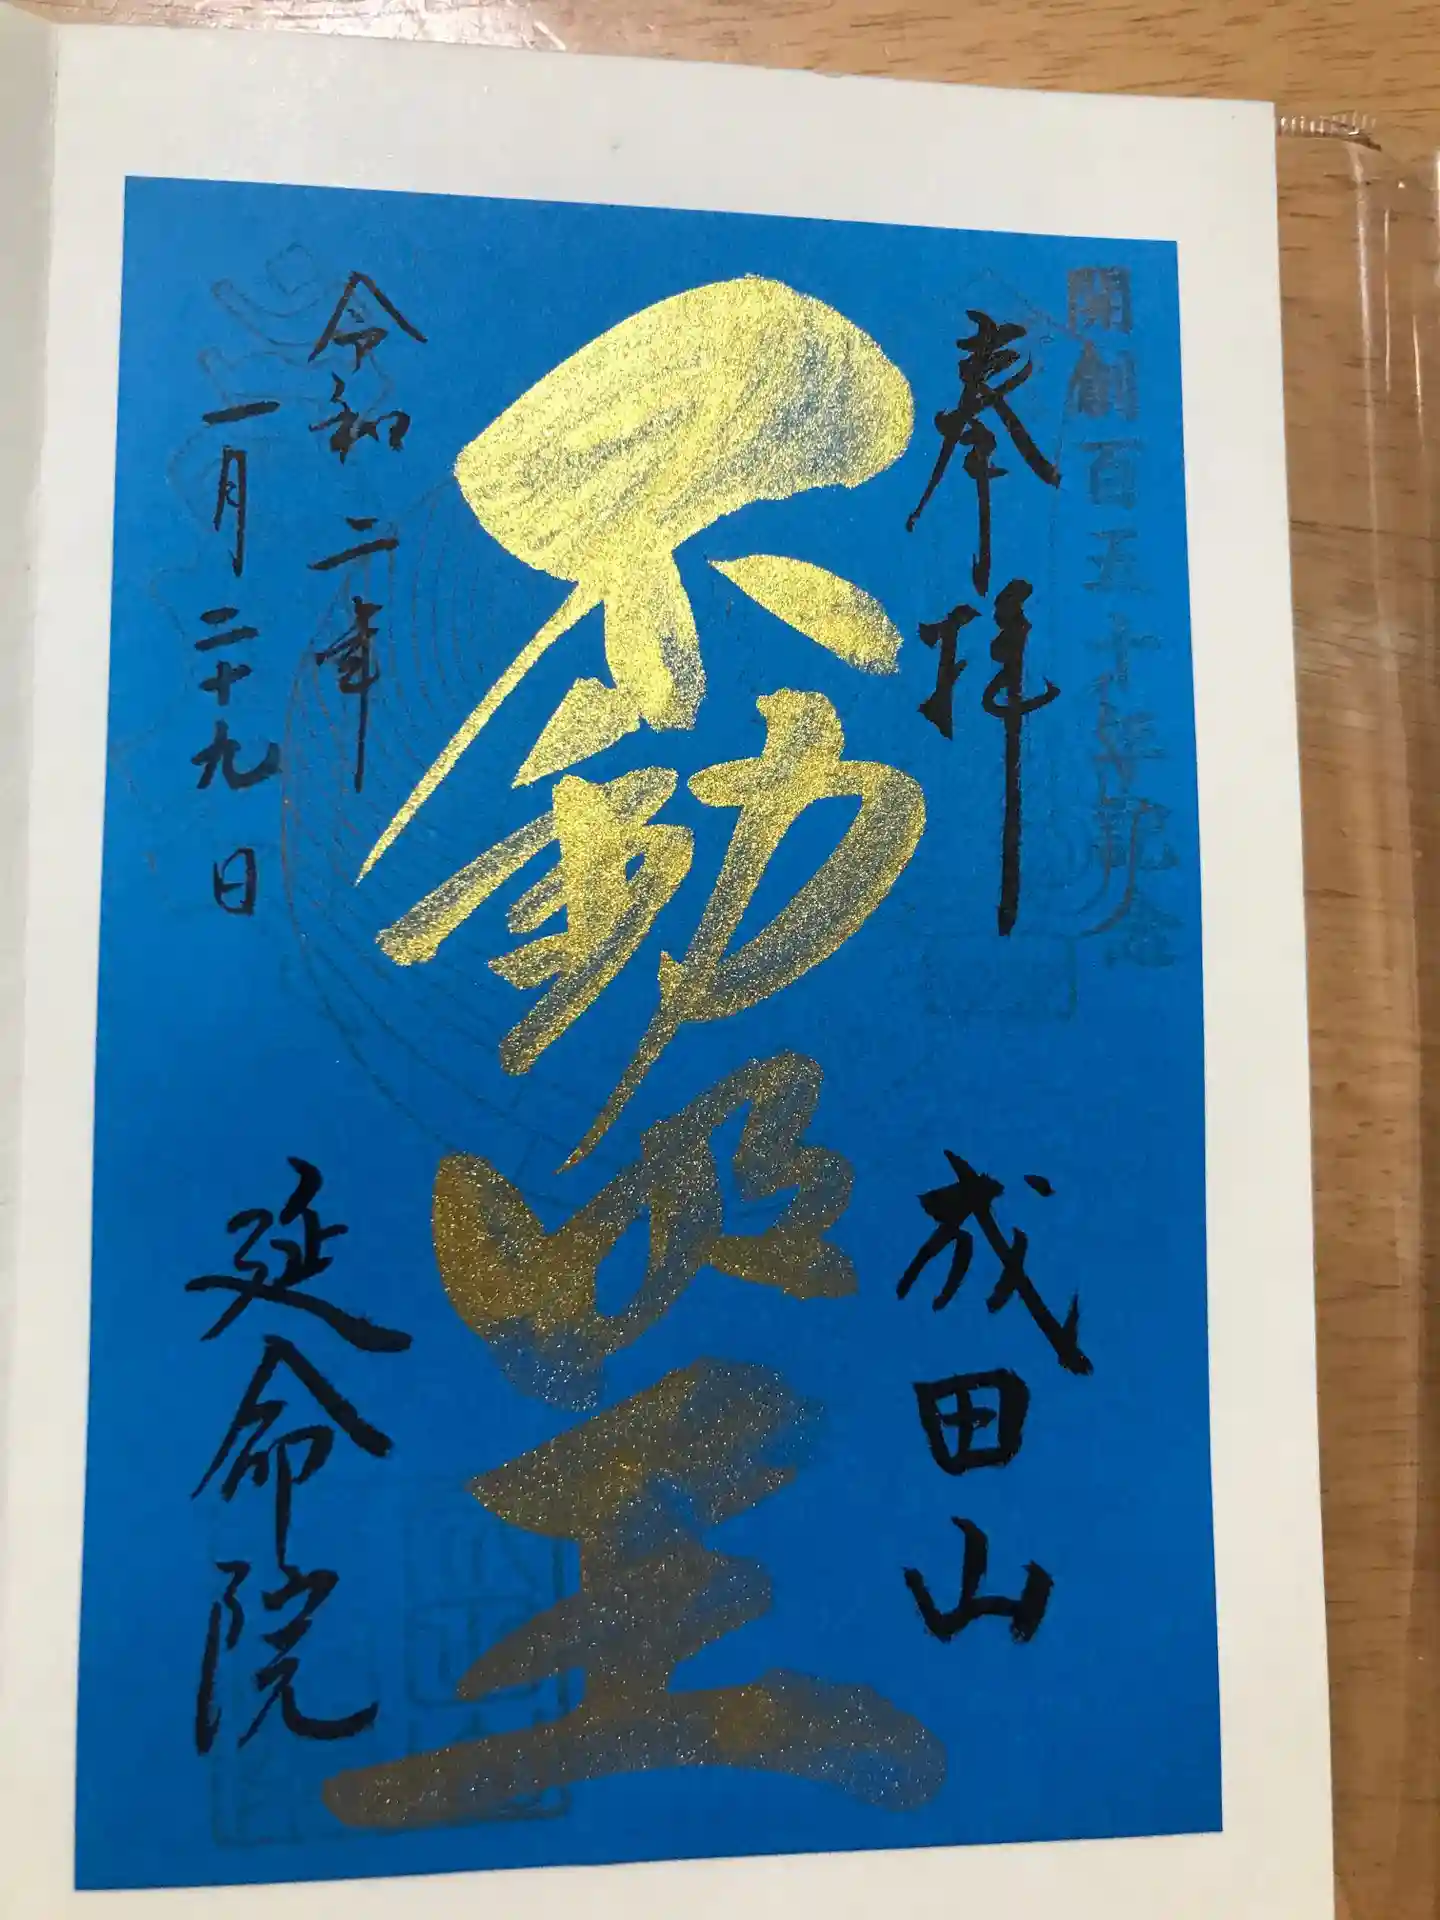 開創百五十年記念
奉拝
成田山
不動明王
令和二年
一月二十九日
延命院